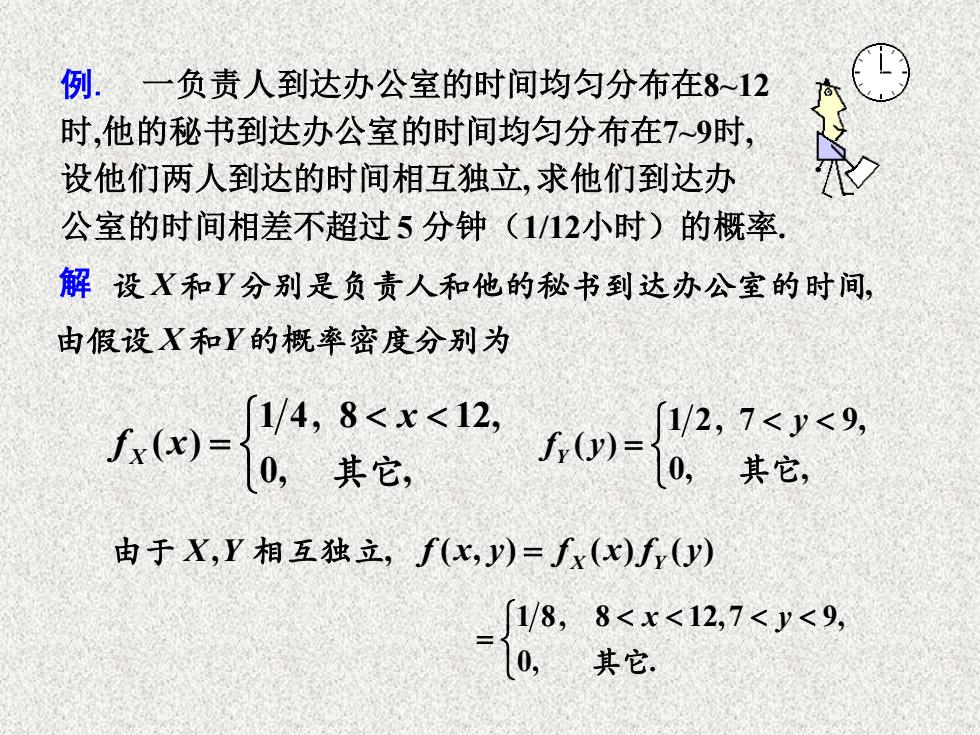 例. 一负责人到达办公室的时间均匀分布在8~12
时,他的秘书到达办公室的时间均匀分布在7~9时,
设他们两人到达的时间相互独立, 求他们到达办
公室的时间相差不超过 5 分钟（1/12小时）的概率.
解 设 X 和 Y 分别是负责人和他的秘书到达办公室的时间,
由假设 X 和 Y 的概率密度分别为
f_X(x) = { 1/4, 8 < x < 12, 0, 其它, f_Y(y) = { 1/2, 7 < y < 9, 0, 其它,
由于 X,Y 相互独立, f(x, y) = f_X(x) f_Y(y)
= { 1/8, 8 < x < 12, 7 < y < 9, 0, 其它.